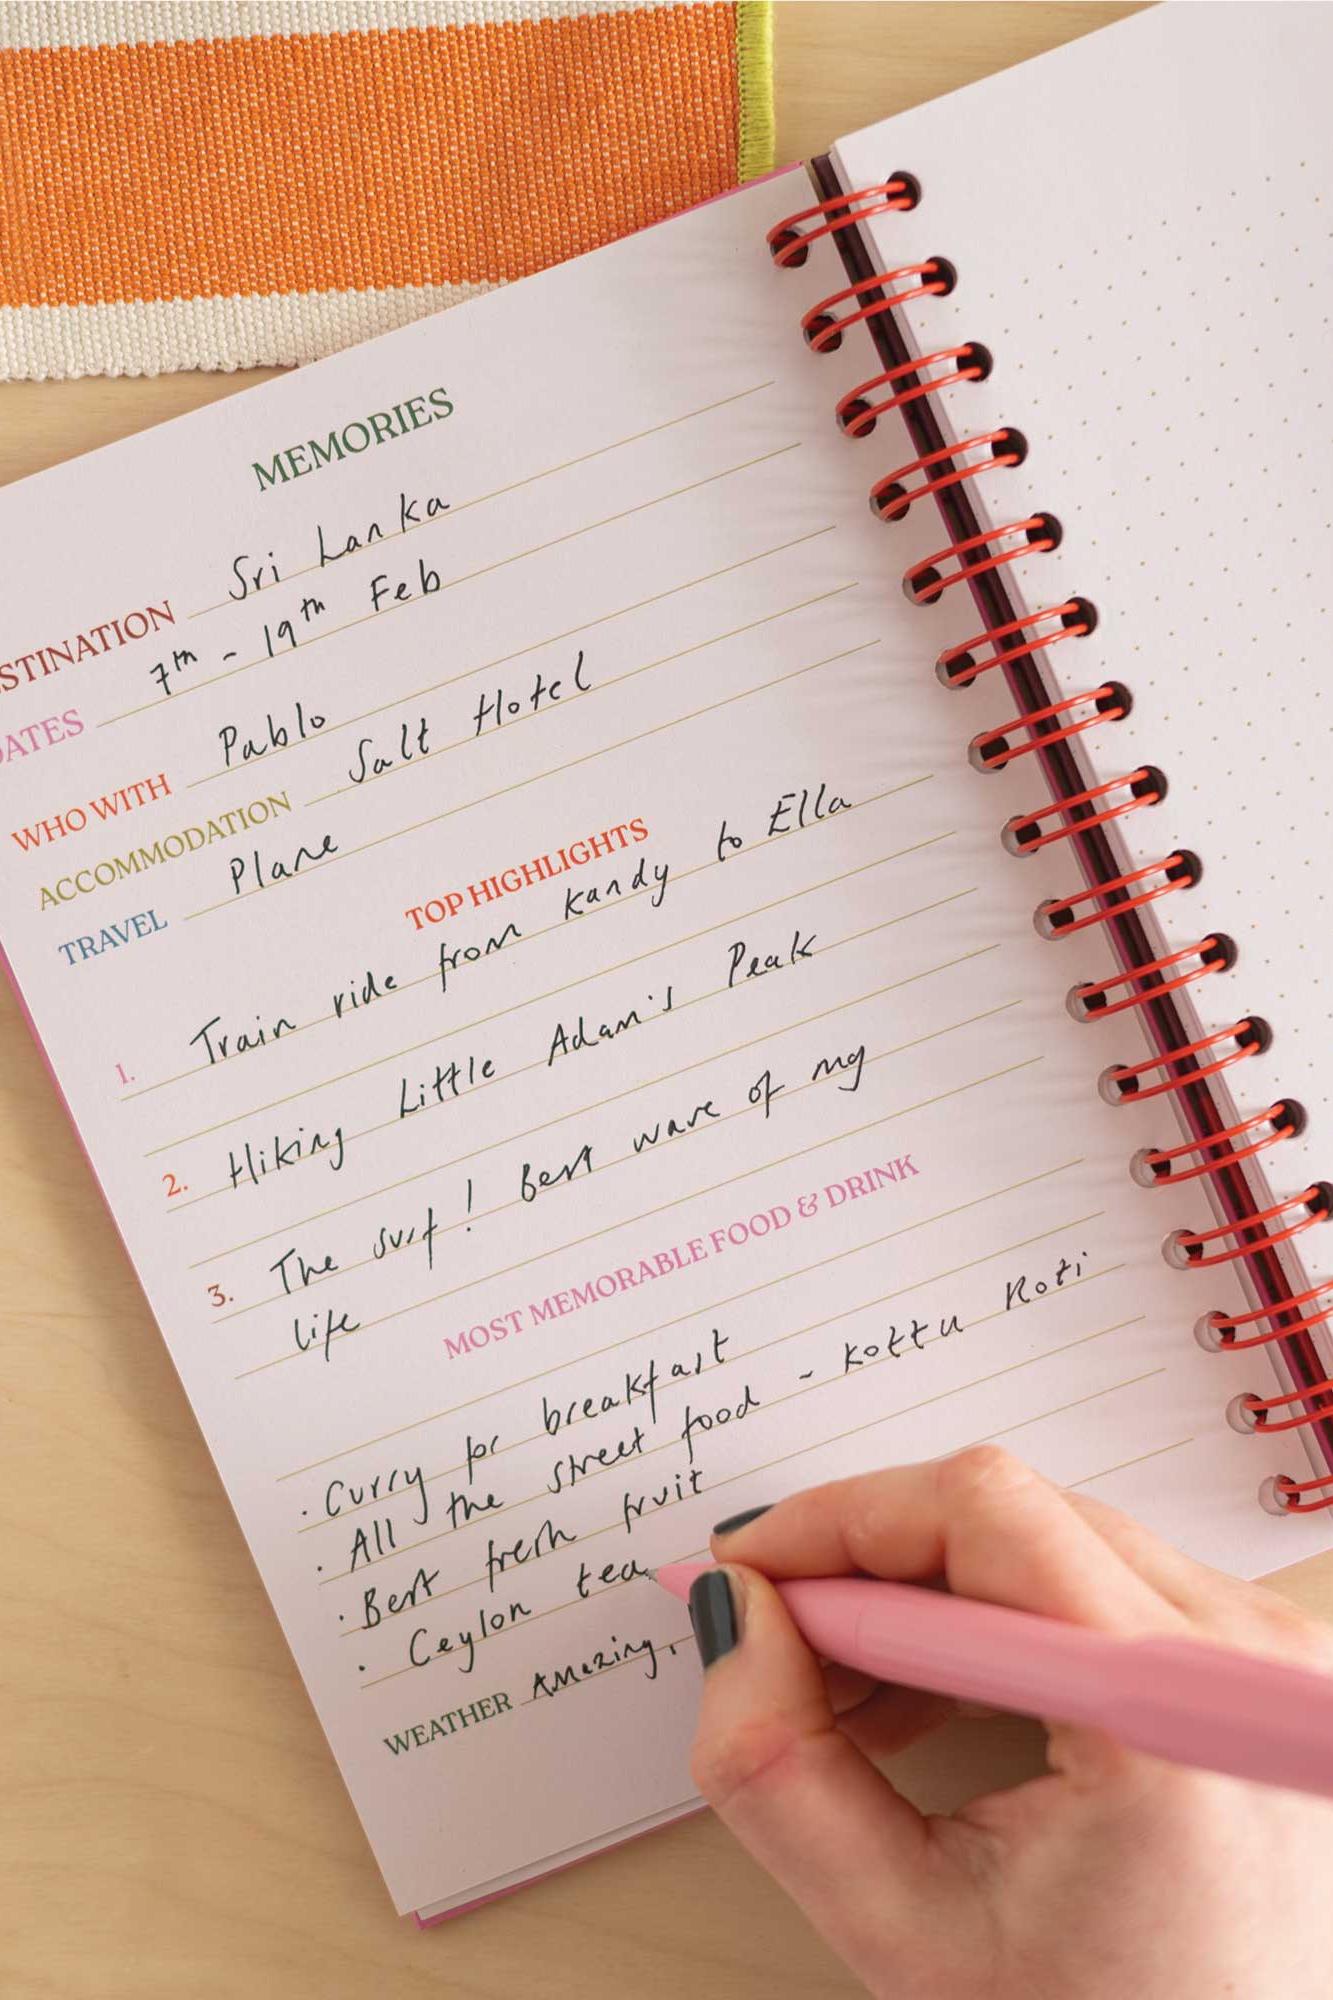 MEMORIES
STINATION Sri Lanka
DATES 7th - 19th Feb
WHO WITH Pablo
ACCOMMODATION Salt Hotel
TRAVEL Plane
TOP HIGHLIGHTS
1. Train ride from Kandy to Ella
2. Hiking Little Adam's Peak
3. The surf! Best wave of my
life
MOST MEMORABLE FOOD & DRINK
. Curry for breakfast
. All the street food - Kottu Roti
. Best fresh fruit
. Ceylon tea
WEATHER Amazing,